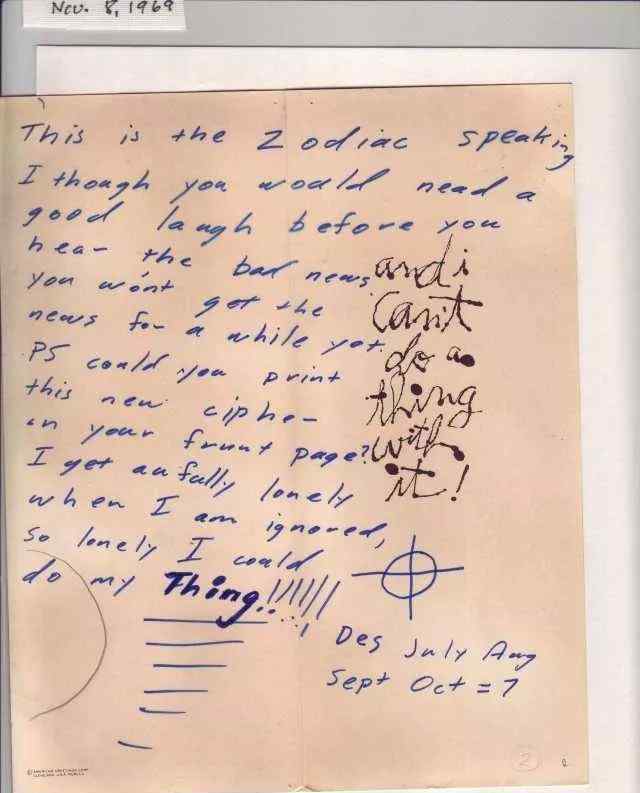 Nov. 8, 1969
This is the Zodiac speaking
I though you would nead a
good laugh before you
hear the bad news
you won't get the
news for a while yet
PS could you print
this new cipher
in your frunt page?
I get aufully lonely
when I am ignored,
so lonely I could
do my Thing!!!!!!
and i
can't
do a
thing
with
it!
Des July Aug
Sept Oct = 7
© AMERICAN GREETINGS CORP.
CLEVELAND, U.S.A.
2